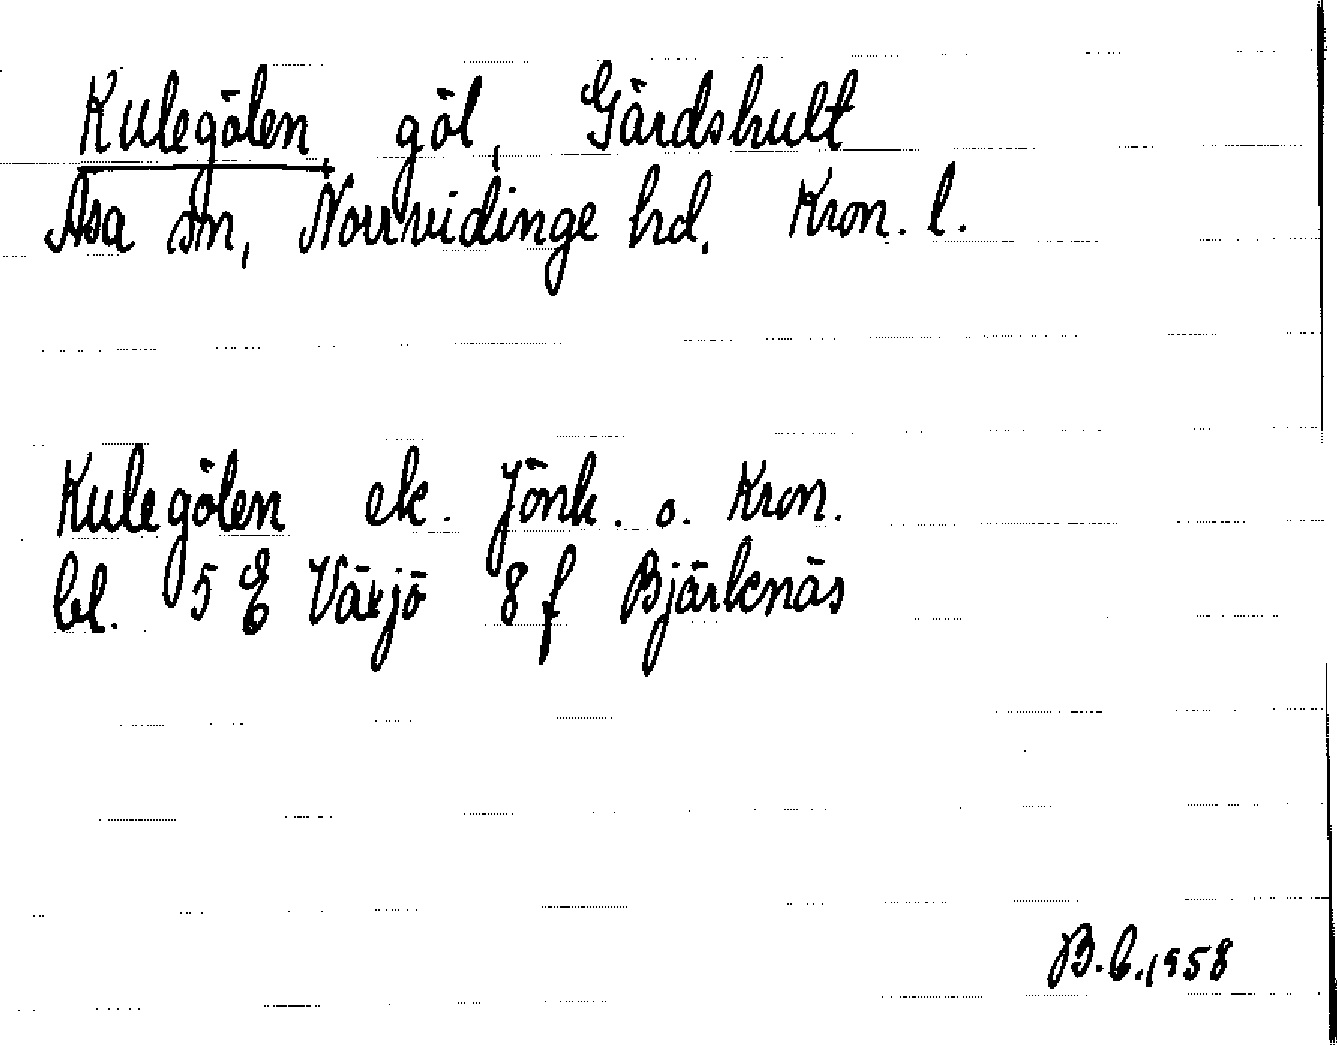 Kulegölen, göl, Gärdshult
Asa sn, Norrvidinge hd. Kron. l.
Kulegölen ek. Jönk. o. Kron.
bl. 5 E Växjö 8 f Björkenäs
B.b.1958